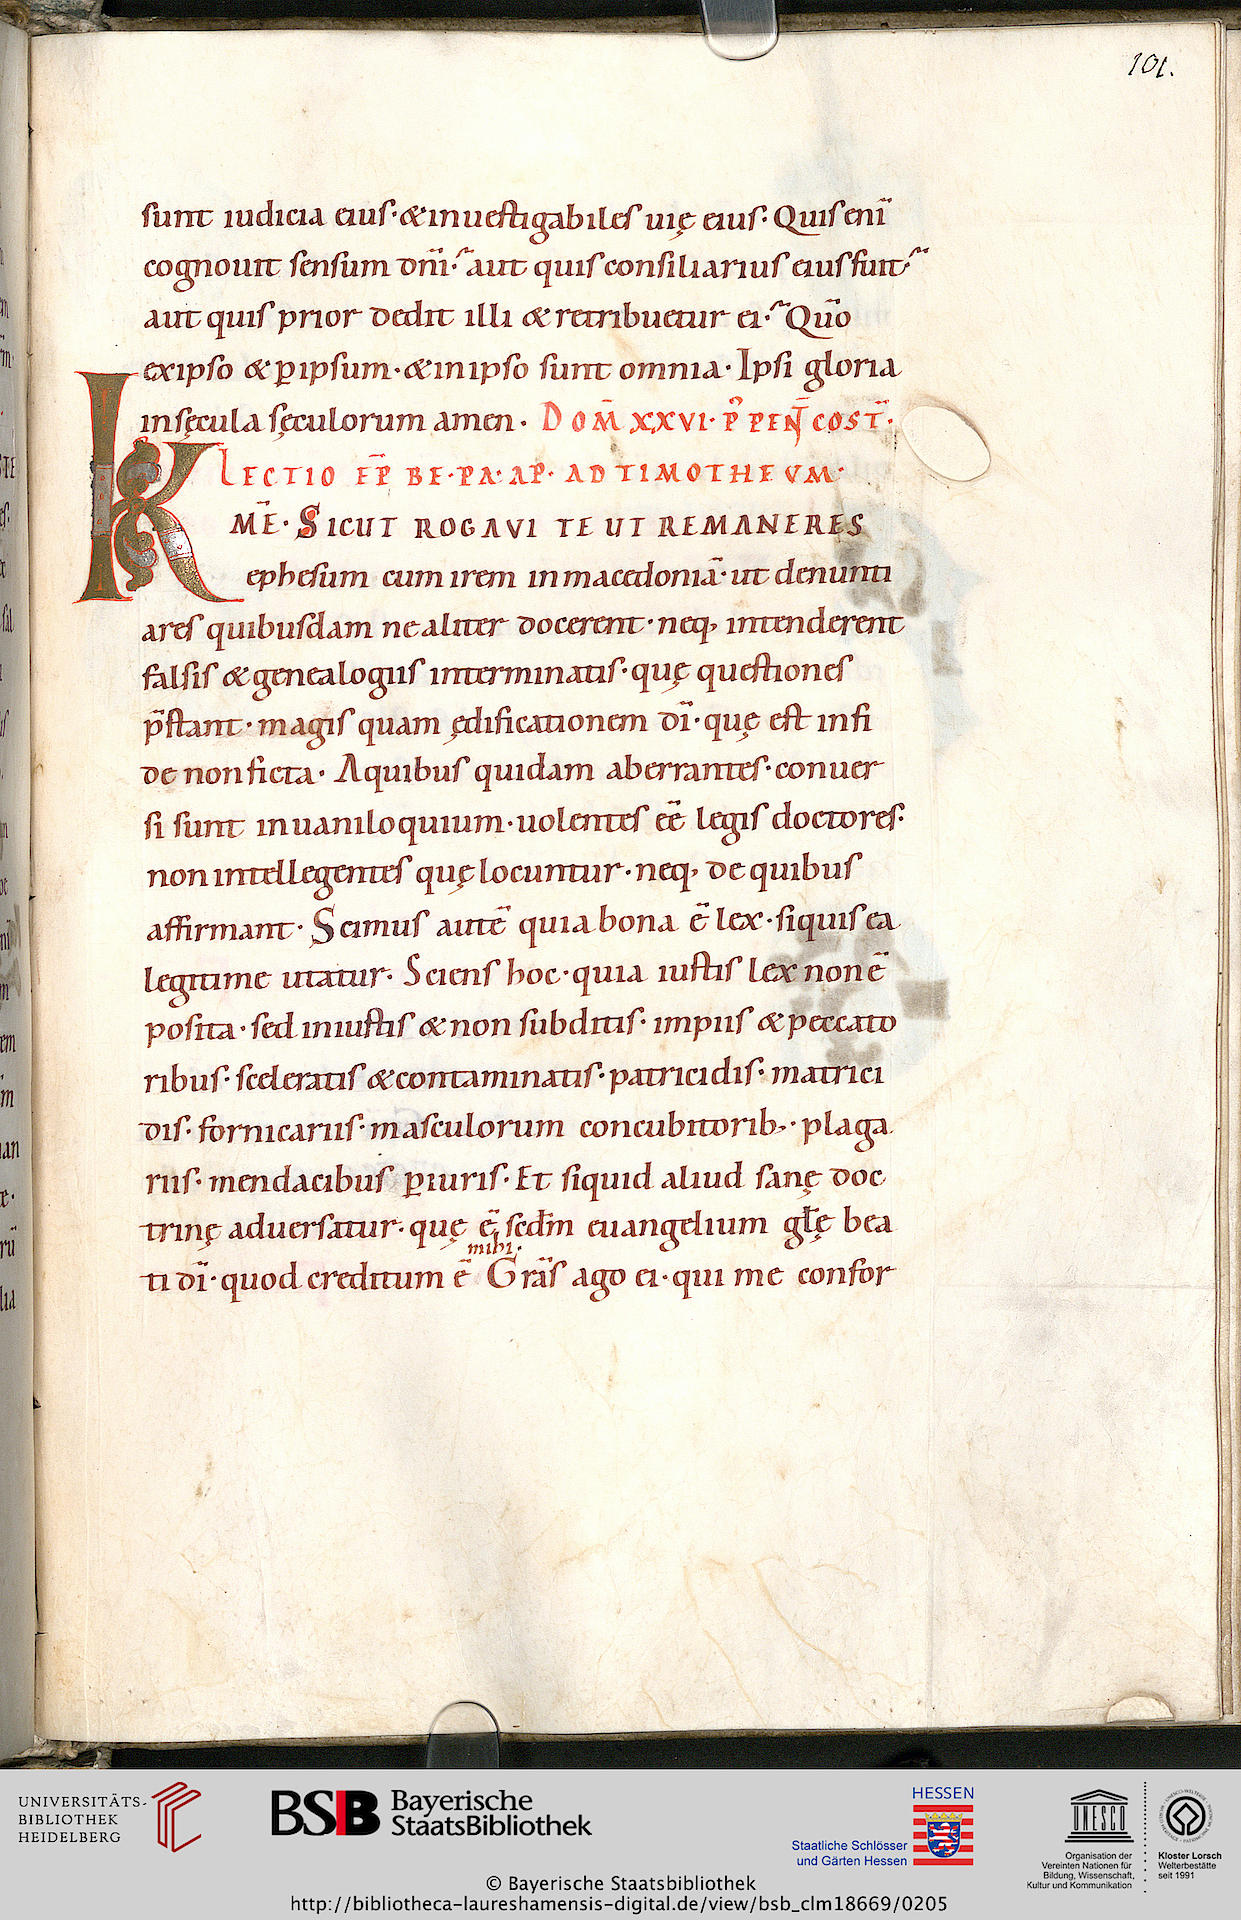 101.
sunt iudicia eius· &inuestigabiles uię eius· Quis eni̅
cognouit sensum dn̅i· aut quis consiliarius eius fuit·
aut quis prior dedit illi & retribuetur ei· Qu̅o
exipso & p̲ipsum· &inipso sunt omnia· Ipsi gloria
insęcula sęculorum amen· DOM̅ XXVI· P̊ PENT̅COST̅·
LECTIO EP̅ BE· PA· AP· AD TIMOTHEVM·
K
M̅E· SICUT ROGAVI TE UT REMANERES
ephesum cum irem inmacedonia̅· ut denunti
ares quibusdam ne aliter docerent· neq, intenderent
falsis & genealogiis interminatis· quę questiones
p̅stant· magis quam ędificationem di̅· quę est infi
de nonficta· Aquibus quidam aberrantes· conuer
si sunt inuaniloquium· uolentes ee̅ legis doctores·
non intellegentes quę locuntur· neq, de quibus
affirmant· Scimus aute̅ quia bona e̅ lex· siquis ea
legitime utatur· Sciens hoc· quia iustis lex non e̅
posita· sed iniustis & non subditis· impiis & peccato
ribus· sceleratis &contaminatis· patricidis· matrici
dis· fornicariis· masculorum concubitorib,· plaga
riis· mendacibus p̲iuris· Et siquid aliud sanę doc
trinę aduersatur· quę e̅ scd̅m euangelium gl̅ę bea
mihi·
ti di̅· quod creditum e̅ Gra̅s ago ei· qui me confor
UNIVERSITÄTS-
BIBLIOTHEK
HEIDELBERG
BSB Bayerische
StaatsBibliothek
HESSEN
Staatliche Schlösser
und Gärten Hessen
UNESCO
Organisation der
Vereinten Nationen für
Bildung, Wissenschaft,
Kultur und Kommunikation
Kloster Lorsch
Welterbestätte
seit 1991
© Bayerische Staatsbibliothek
http://bibliotheca-laureshamensis-digital.de/view/bsb_clm18669/0205